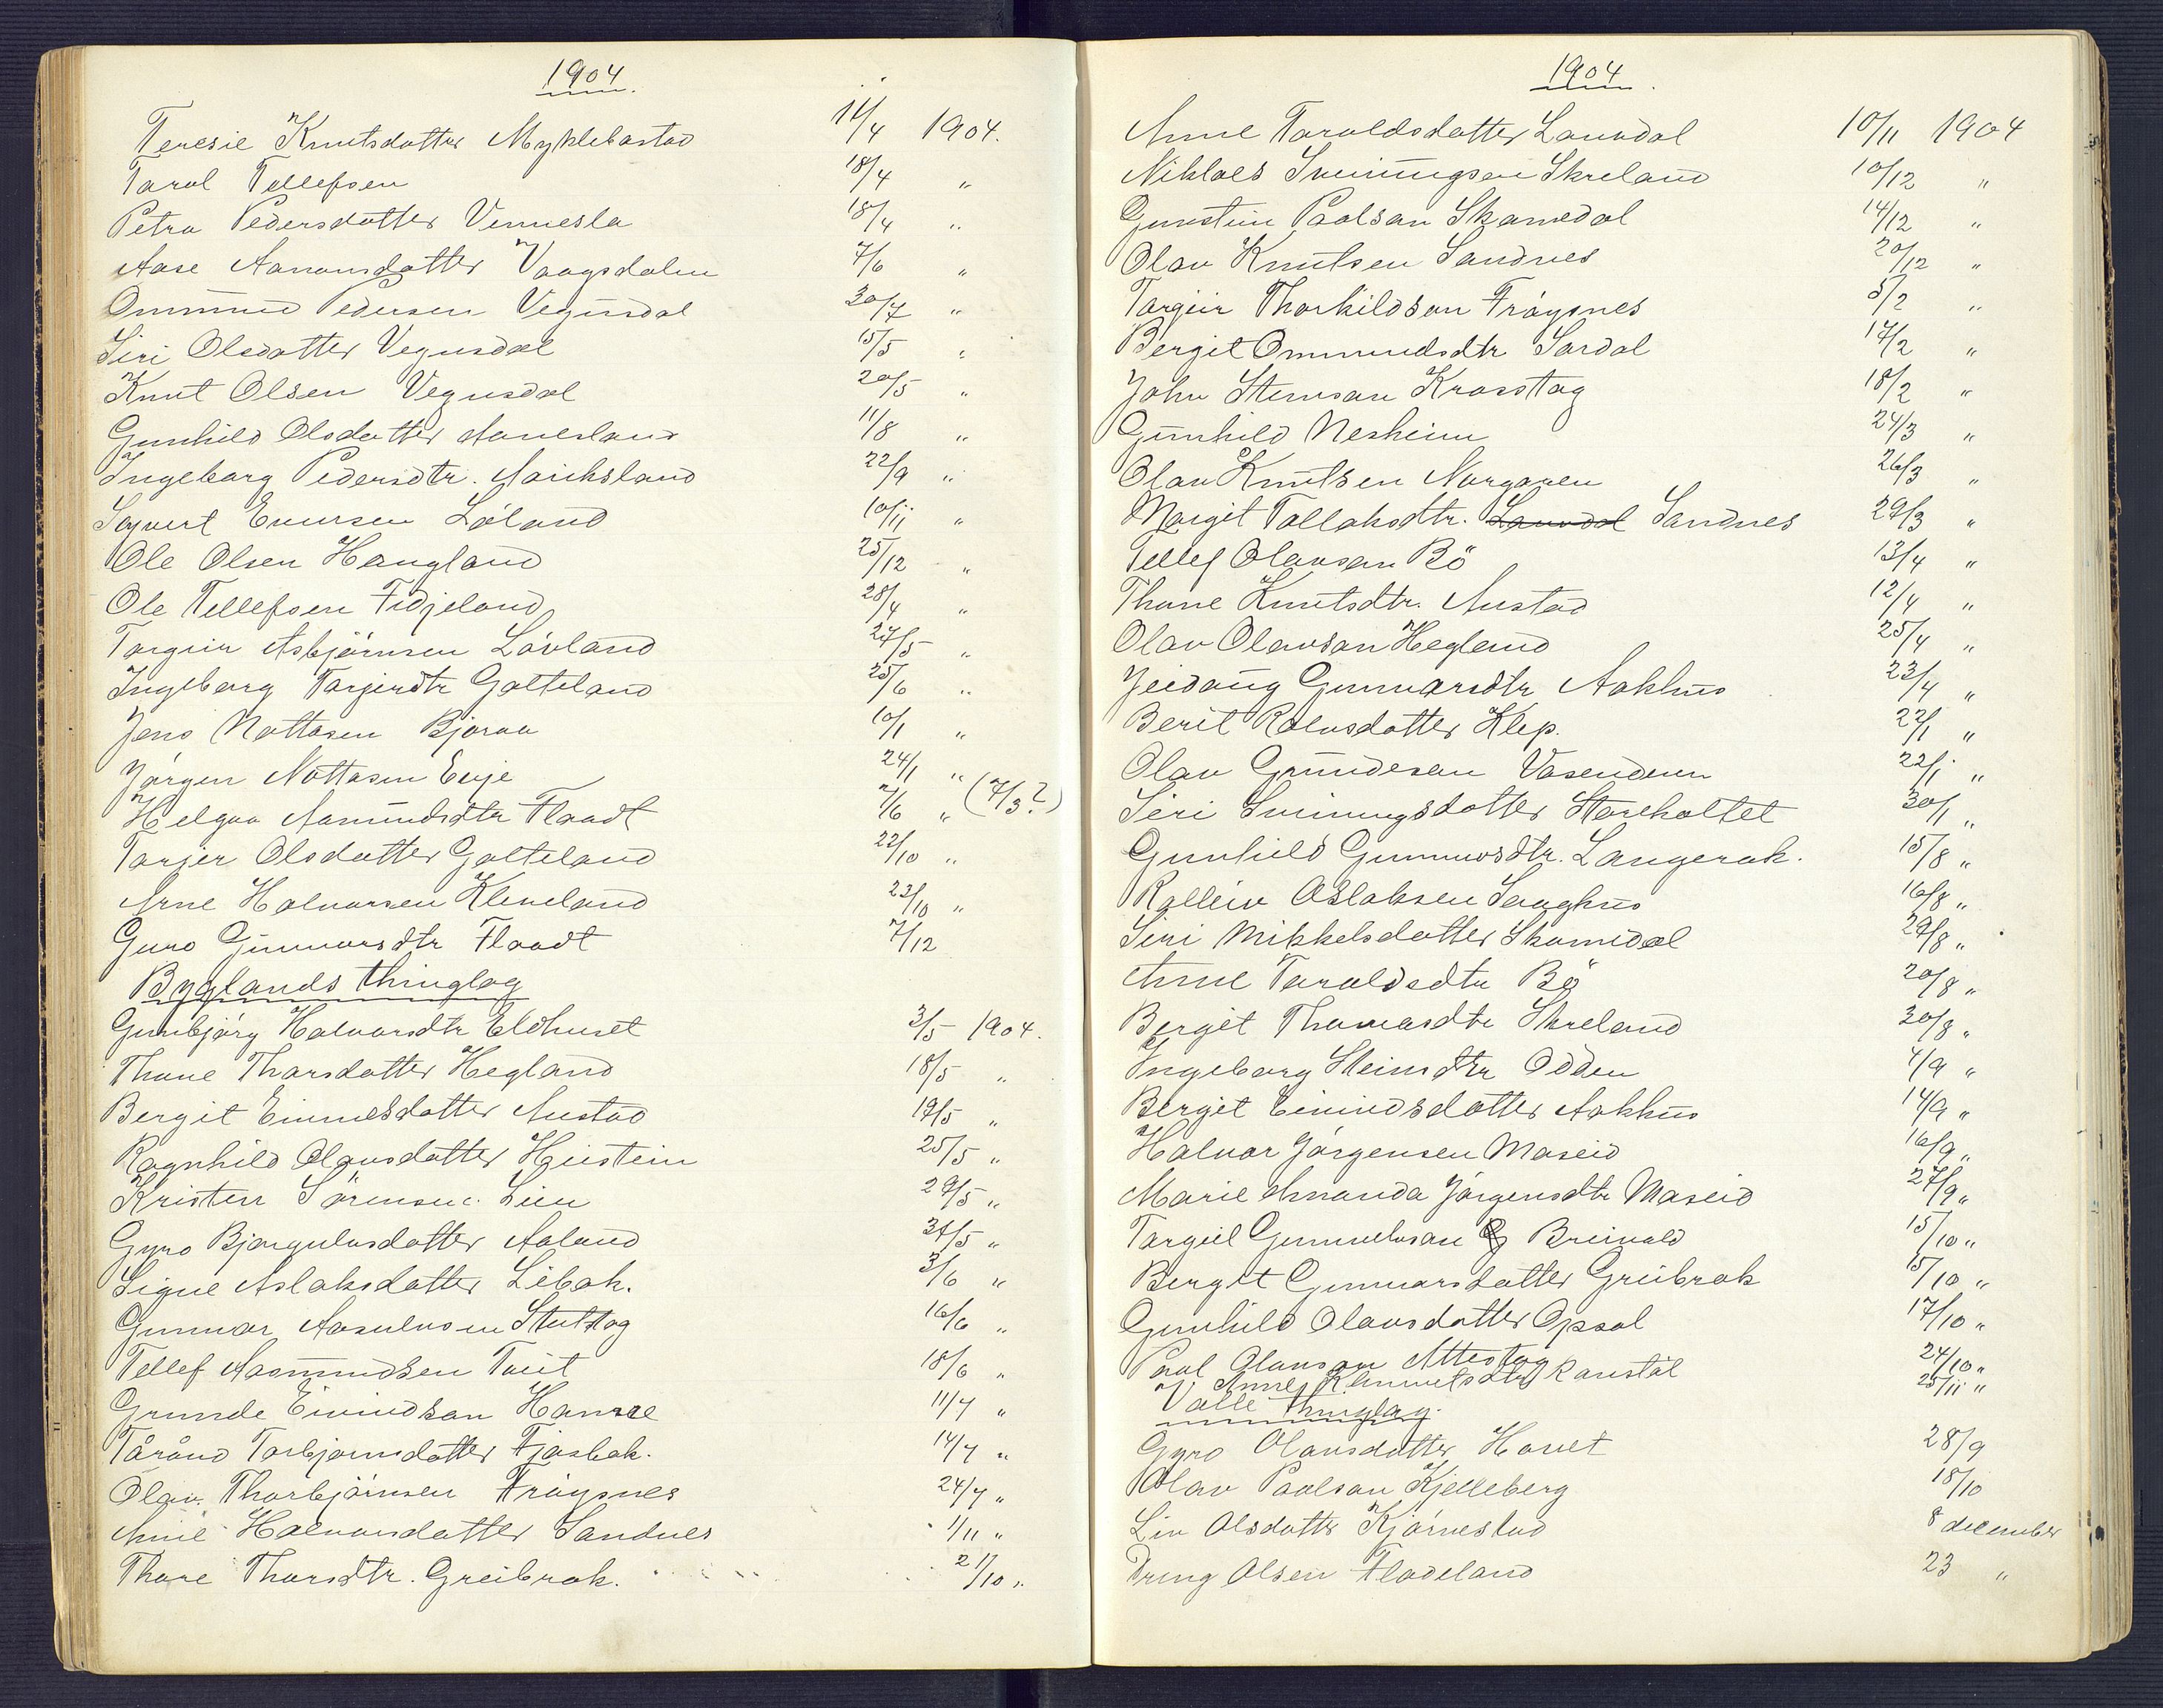 1904.
Teresie Knutsdatter Myklebostad 14/4 1904.
Tarol Tellefsen 18/4 "
Petra Pedersdatter Vennesla 18/4 "
Aase Aanonsdatter Vaagsdalen 7/6 "
Ommund Pedersen Vegusdal 30/7 "
Siri Olsdatter Vegusdal 15/5 "
Knut Olsen Vegusdal 20/5 "
Gunhild Olsdatter Aanesland 11/8 "
Ingeborg Pedersdtr. 22/9 "
Syvert Evensen Løland 10/11 "
Ole Olsen Haugland 25/12 "
Ole Tellefsen Fidjeland 28/4 "
Torgeir Asbjörnsen Lövland 27/5 "
Ingeborg Tarjerdtr Galteland 25/6 "
Jens Nottosen Bjoraa 10/1 "
Jörgen Nottosen Evje 24/1 "
Helgaa Aamundsdtr Flaadt 7/6 " (7/3?)
Tarjer Olsdatter Galteland 22/10 "
Arne Halvorsen Kleveland 23/10 "
Guro Gunnarsdtr Flaadt 7/12
Byglands thinglag
Gunbjörg Halvorsdtr Eldhuset 3/5 1904.
Thone Thorsdatter Hegland 18/5 "
Bergit Austad 19/5 "
Ragnhild Olavsdatter Heistein 25/5 "
Kristen Sörensen Lien 29/5 "
Gyro Bjorgulvsdatter Aaland 31/5 "
Signe Aslaksdatter Libak. 3/6 "
Gunnar Aasulvsen Stuttog 16/6 "
Tellef Aasmundsen Tveit 18/6 "
Grunde Eivindson Hamre 11/7 "
Tårånd Torbjornsdatter Fjosbak. 14/7 "
Olav Thorbjörnsen Fröysnes 24/7 "
Anne Halvorsdatter Sandnes 1/11 "
Thore Thorsdtr. Greibrok. 21/10 "
1904.
Anne Taroldsdatter Lauvdal 10/11 1904
Niklas Sveinungsen Skreland 10/12 "
Gunstein Paalson Skamedal 14/12 "
Olav Knutsen Sandnes 20/12 "
Torgeir Thorkildson Fröysnes 5/2 "
Bergit Ommundsdtr Sordal 17/2 "
John Steinson Krosstog 18/2 "
Gunhild Nesheim 24/3 "
Olav Knutsen Norgaren 26/3 "
Margit Tallaksdtr. Lauvdal Sandnes 29/3 "
Tellef Olavsen Bö 13/4 "
Thone Knutsdtr. Austad 12/4 "
Olav Olavson Hegland 25/4 "
Jeidaug Gunnarsdtr Aakhus 23/4 "
Berit Rolvsdatter Klep. 22/1 "
Olav Grundeson Vasenden 22/1 "
Siri Sveinungsdatter Storeholtet 30/1 "
Gunhild Gunnarsdtr. Langerak. 15/8 "
Rolleiv Aslaksen Sanghus 16/8 "
Siri Mikkelsdatter Skomedal 29/8 "
Anne Taroldsdtr Bö 20/8 "
Bergit Thomasdtr Skreland 30/8 "
Ingeborg Steinsdtr Odden 4/9 "
Bergit Eivindsdatter Aakhus 14/9 "
Halvor Jörgensen Moseid 16/9 "
Marie Amanda Jörgensdtr Moseid 27/9 "
Torgeil Gunnulvson Breivold 15/10 "
Bergit Gunnarsdatter Greibrok 15/10 "
Gunhild Olavsdatter Opsal 17/10 "
Paal Olavson Attestog 24/10 "
Anne Ranstöl 25/11 "
Valle thinglag.
Gyro Olavsdatter Hovet 28/9
Olav Paalson Kjelleberg 18/10
Liv Olsdatter Kjörnestad 8 december
Dreng Olsen Flodeland 23 "